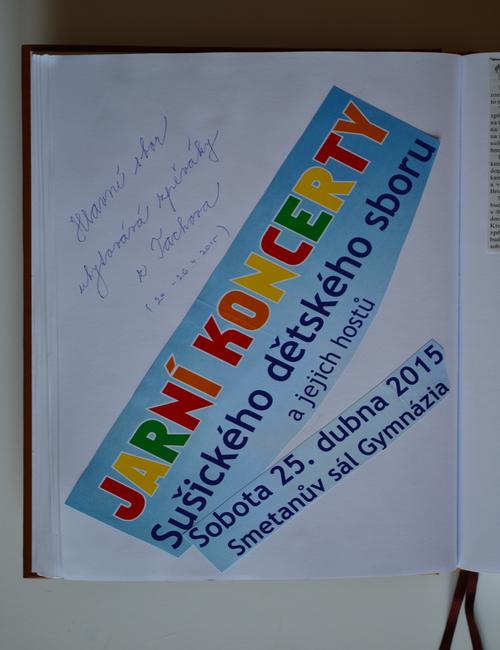 Hlavní sbor
ubytovává zpěváky
z Tachova
JARNÍ KONCERTY
Sušického dětského sboru
a jejich hostů
Sobota 25. dubna 2015
Smetanův sál Gymnázia